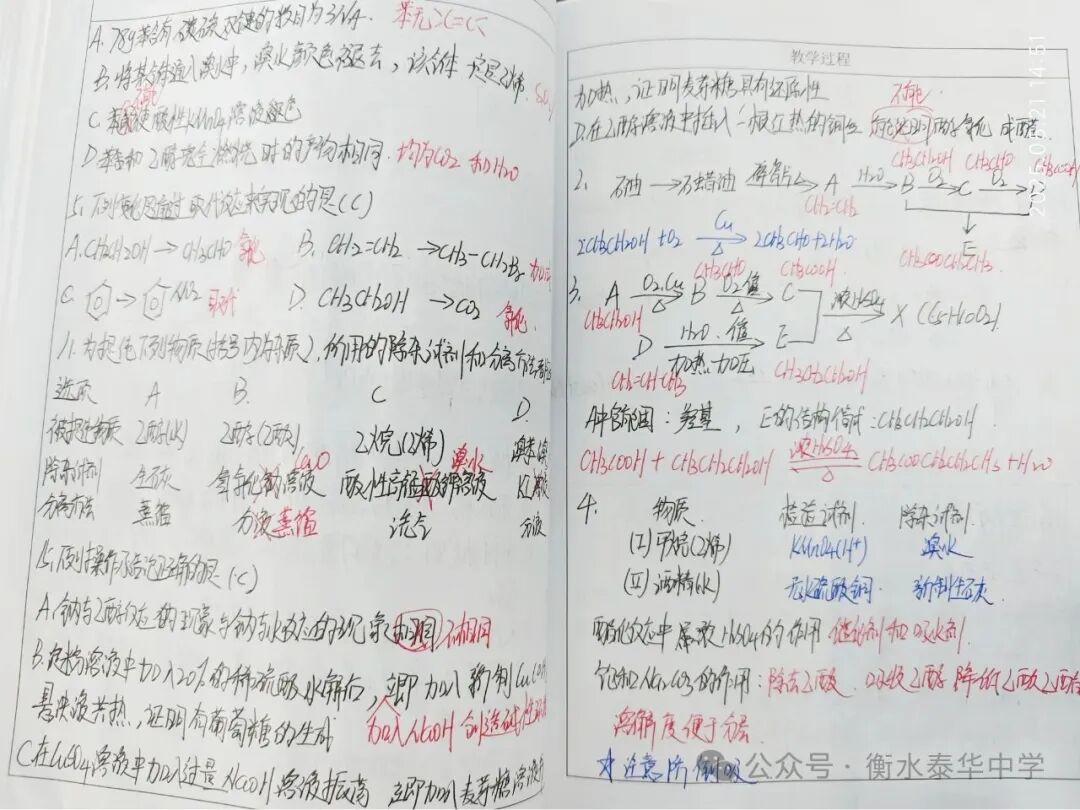 A. 78g苯含有碳碳双键的数目为3NA. 苯无>C=C<
B. 将某气体通入溴水中,溴水颜色褪去,该气体一定是乙烯. SO2
C. 苯能使酸性KMnO4溶液褪色
不能
D. 苯和乙醇完全燃烧时的产物相同. 均为CO2和H2O
5. 下列变化是通过取代反应来实现的是(C)
A. CH3CH2OH → CH3CHO 氧化 B. CH2=CH2 → CH3-CH2Br 加成
C. → NO2 取代 D. CH3CH2OH → CO2 氧化.
11. 为提纯下列物质(括号内为杂质),所用的除杂试剂和分离方法都
选项 A B. C D.
被提纯物质 乙醇(水) 乙醇(乙酸) 乙烷(乙烯) 溴苯(溴
除杂试剂 生石灰 氢氧化钠溶液 CaO 酸性高锰酸钾溶液 溴水 KI溶液
分离方法 蒸馏 分液 蒸馏 洗气 分液
15. 下列操作及结论正确的是(C)
A. 钠与乙醇反应的现象与钠与水反应的现象相同 不相同
B. 淀粉溶液中加入20%的稀硫酸水解后,立即加入新制Cu(OH)
悬浊液共热,证明有葡萄糖的生成 加入NaOH创造碱性
C. 在CuSO4溶液中加入过量NaOH溶液振荡 立即加入麦芽糖溶液
教学过程
加热,证明麦芽糖具有还原性 不能.
D. 在乙醇溶液中插入一根红热的铜丝 能证明乙醇氧化成醛.
CH3CH2OH CH3CHO CH3COOH
2. 石油 → 石蜡油 碎瓷片△ A H2O B O2 C O2 D
CH2=CH2
E
CH3COOCH2CH3
2CH3CH2OH + O2 Cu △ 2CH3CHO + 2H2O
CH3CHO CH3COOH
3. A O2.Cu △ B O2.催 △ C
CH3CH2OH 浓H2SO4 △ X (C5H10O2)
D H2O.催 加热.加压 E
CH2=CH-CH3 CH3CH2CH2OH
A中官能团:羟基,E的结构简式:CH3CH2CH2OH
CH3COOH + CH3CH2CH2OH 浓H2SO4 △ CH3COOCH2CH2CH3 + H2O
4. 物质. 检验试剂. 除杂试剂.
(I)甲烷(乙烯) KMnO4(H+) 溴水
(II)酒精(水) 无水硫酸铜. 新制生石灰.
酯化反应中浓H2SO4的作用 催化剂和吸水剂.
饱和Na2CO3的作用:除去乙酸.吸收乙醇 降低乙酸乙酯
溶解度便于分层
☆注意防倒吸
公众号·衡水泰华中学